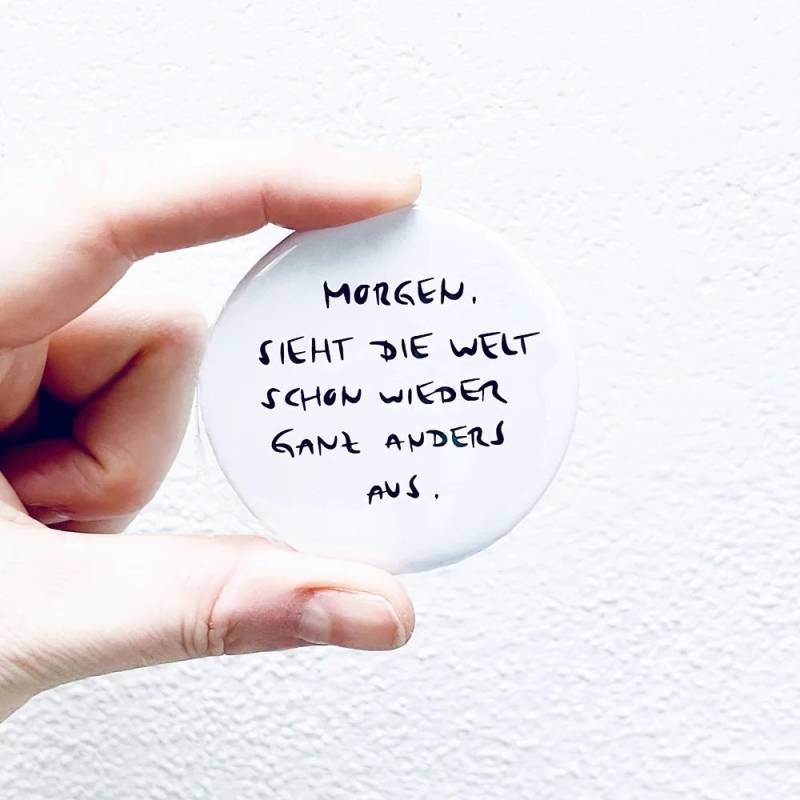 MORGEN.
SIEHT DIE WELT
SCHON WIEDER
GANZ ANDERS
AUS.